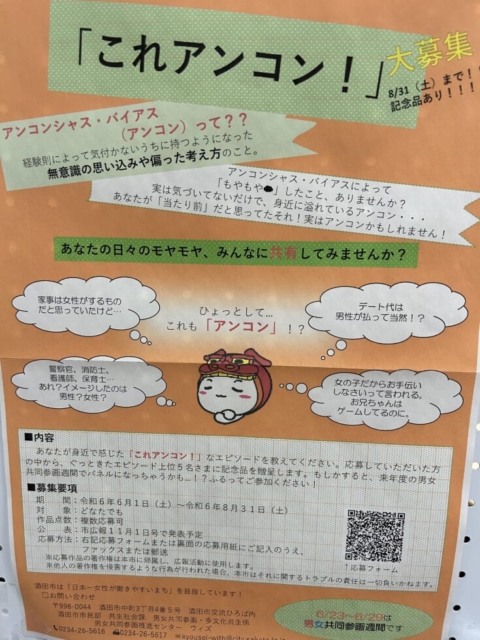 「これアンコン！」
大募集
8/31（土）まで！！
記念品あり！！！
アンコンシャス・バイアス
（アンコン）って？？
経験則によって気付かないうちに持つようになった
無意識の思い込みや偏った考え方のこと。
アンコンシャス・バイアスによって
「もやもや」したこと、ありませんか？
実は気づいてないだけで、身近に溢れているアンコン・・・
あなたが「当たり前」だと思ってたそれ！実はアンコンかもしれません！
あなたの日々のモヤモヤ、みんなに共有してみませんか？
家事は女性がするもの
だと思っていたけど…
ひょっとして…
これも「アンコン」！？
デート代は
男性が払って当然！？
警察官、消防士、
看護師、保育士…
あれ？イメージしたのは
男性？女性？
女の子だからお手伝い
しなさいって言われる。
お兄ちゃんは
ゲームしてるのに。
■内容
あなたが身近で感じた「これアンコン！」なエピソードを教えてください。応募していただいた方
の中から、ぐっときたエピソード上位５名さまに記念品を贈呈します。もしかすると、来年度の男女
共同参画週間でパネルになっちゃうかも…！？ふるってご参加ください！
■募集要項
期　間：令和６年６月１日（土）～令和６年８月３１日（土）
対　象：どなたでも
作品点数：複数応募可
公　表：市広報１１月１日号で発表予定
応募方法：右記応募フォームまたは裏面の応募用紙にご記入のうえ、
ファックスまたは郵送
↑応募フォーム
※応募作品の著作権は本市に帰属し、広報活動に使用します。
※他人の著作権を侵害するような行為が行われた場合、本市はそれに関するトラブルの責任は一切負いかねます。
酒田市は「日本一女性が働きやすいまち」を目指しています！
お問い合わせ
〒998-0044　酒田市中町3丁目4番5号　酒田市交流ひろば内
酒田市市民部　共生社会課　男女共同参画・多文化共生係
男女共同参画推進センター　ウィズ
0234-26-5616　0234-26-5617
6/23～6/29は
男女共同参画週間です